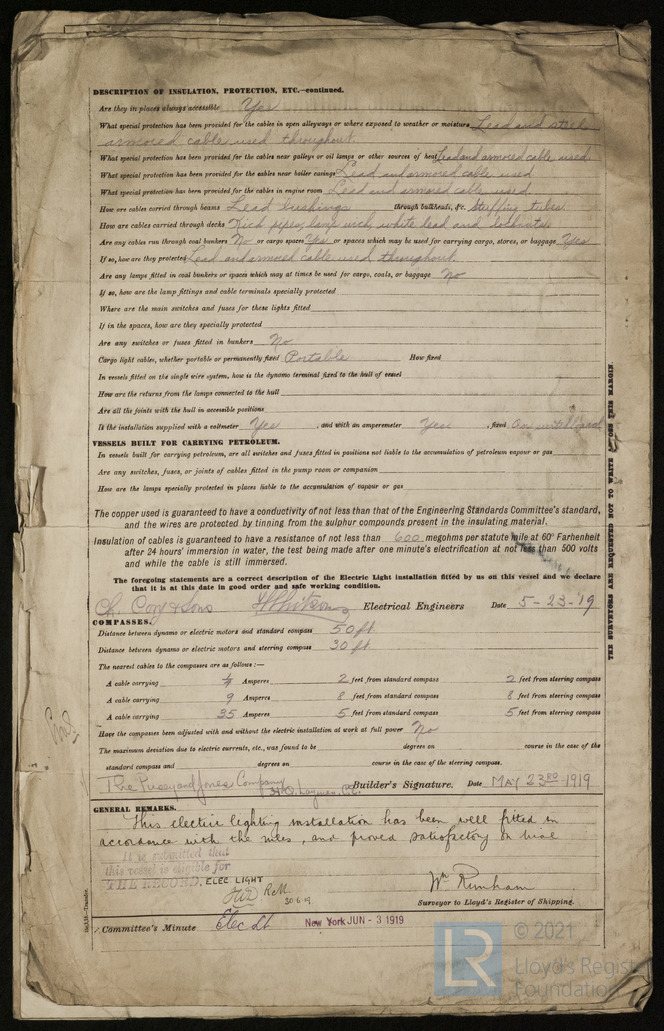 DESCRIPTION OF INSULATION, PROTECTION, ETC.—continued.
Are they in places always accessible Yes
What special protection has been provided for the cables in open alleyways or where exposed to weather or moisture Lead and steel
armored cables used throughout
What special protection has been provided for the cables near galleys or oil lamps or other sources of heat Lead and armored cable used.
What special protection has been provided for the cables near boiler casings Lead and armored cable used
What special protection has been provided for the cables in engine room Lead and armored cable used.
How are cables carried through beams Lead bushings through bulkheads, &c. Stuffing tubes
How are cables carried through decks Kick pipes, lamp wick, white lead and locknuts.
Are any cables run through coal bunkers No or cargo spaces Yes or spaces which may be used for carrying cargo, stores, or baggage Yes
If so, how are they protected Lead and armored cable used throughout.
Are any lamps fitted in coal bunkers or spaces which may at times be used for cargo, coals, or baggage No
If so, how are the lamp fittings and cable terminals specially protected
Where are the main switches and fuses for these lights fitted
If in the spaces, how are they specially protected
Are any switches or fuses fitted in bunkers No
Cargo light cables, whether portable or permanently fixed Portable How fixed
In vessels fitted on the single wire system, how is the dynamo terminal fixed to the hull of vessel
How are the returns from the lamps connected to the hull
Are all the joints with the hull in accessible positions
Is the installation supplied with a voltmeter Yes , and with an amperemeter Yes , fixed On switchboard
VESSELS BUILT FOR CARRYING PETROLEUM.
In vessels built for carrying petroleum, are all switches and fuses fitted in positions not liable to the accumulation of petroleum vapour or gas
Are any switches, fuses, or joints of cables fitted in the pump room or companion
How are the lamps specially protected in places liable to the accumulation of vapour or gas
The copper used is guaranteed to have a conductivity of not less than that of the Engineering Standards Committee's standard,
and the wires are protected by tinning from the sulphur compounds present in the insulating material.
Insulation of cables is guaranteed to have a resistance of not less than 600 megohms per statute mile at 60° Farhenheit
after 24 hours' immersion in water, the test being made after one minute's electrification at not less than 500 volts
and while the cable is still immersed.
The foregoing statements are a correct description of the Electric Light installation fitted by us on this vessel and we declare
that it is at this date in good order and safe working condition.
Ch. Cory & Sons Electrical Engineers Date 5-23-19
COMPASSES.
Distance between dynamo or electric motors and standard compass 50 ft
Distance between dynamo or electric motors and steering compass 30 ft
The nearest cables to the compasses are as follows:—
A cable carrying 4 Amperes 2 feet from standard compass 2 feet from steering compass
A cable carrying 9 Amperes 8 feet from standard compass 8 feet from steering compass
A cable carrying 35 Amperes 5 feet from standard compass 5 feet from steering compass
Have the compasses been adjusted with and without the electric installation at work at full power No
The maximum deviation due to electric currents, etc., was found to be degrees on course in the case of the
standard compass and degrees on course in the case of the steering compass.
The Pusey and Jones Company Builder's Signature. Date MAY 23RD 1919
GENERAL REMARKS.
This electric lighting installation has been well fitted in
accordance with the rules, and proved satisfactory on trial
It is submitted that
this vessel is eligible for
THE RECORD. ELEC. LIGHT
Wm Runham
30.6.19
Surveyor to Lloyd's Register of Shipping.
Committee's Minute Elec Lt New York JUN - 3 1919
THE SURVEYORS ARE REQUESTED NOT TO WRITE ACROSS THIS MARGIN.
LR
© 2021
Lloyd's Register
Foundation